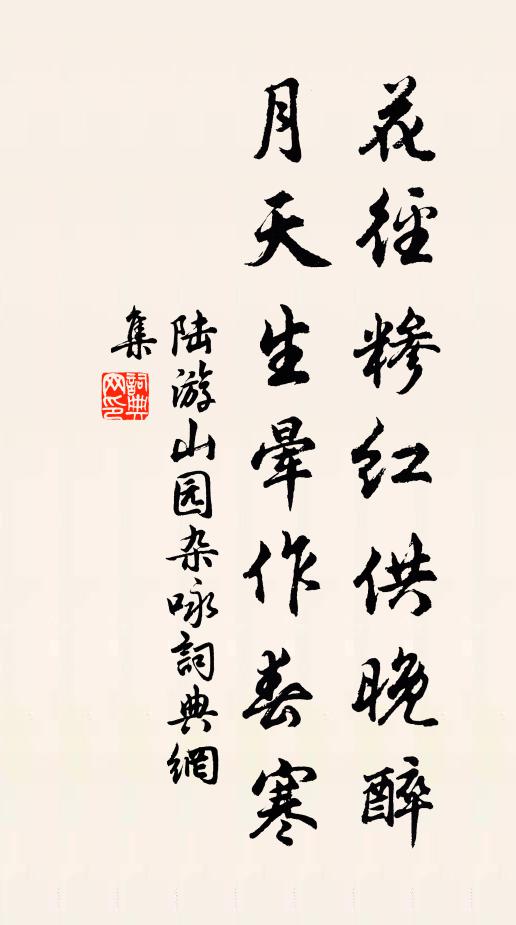 花径糁红供晚醉
月天生晕作春寒
陆游山园杂咏詞典網
集
詞典网印